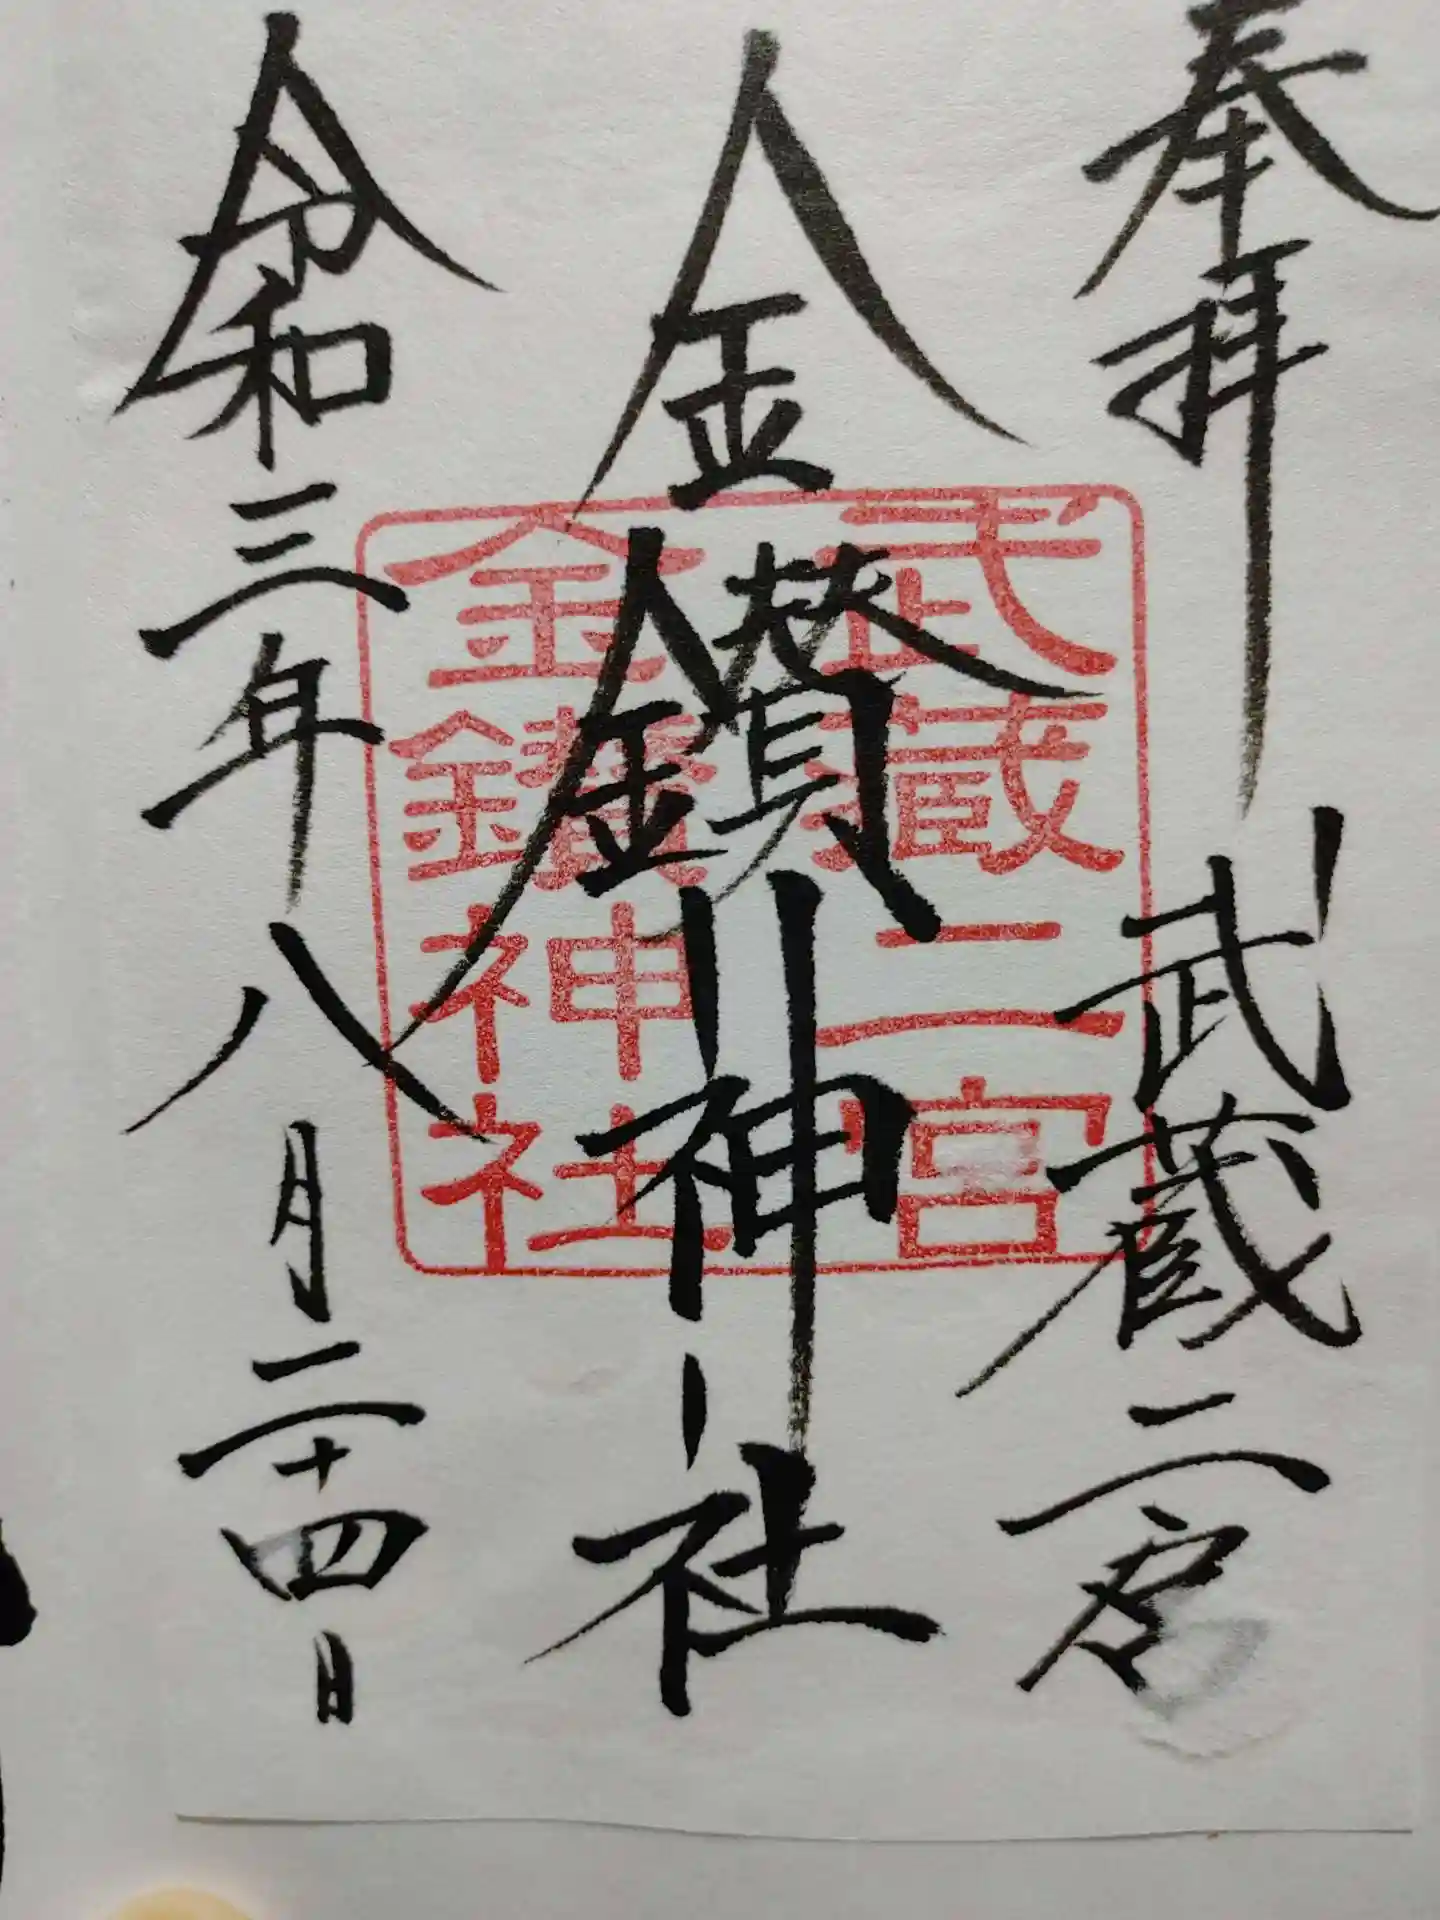 奉拝
武蔵二宮
金鑚神社
武蔵二宮
金鑚神社
令和三年八月二十四日